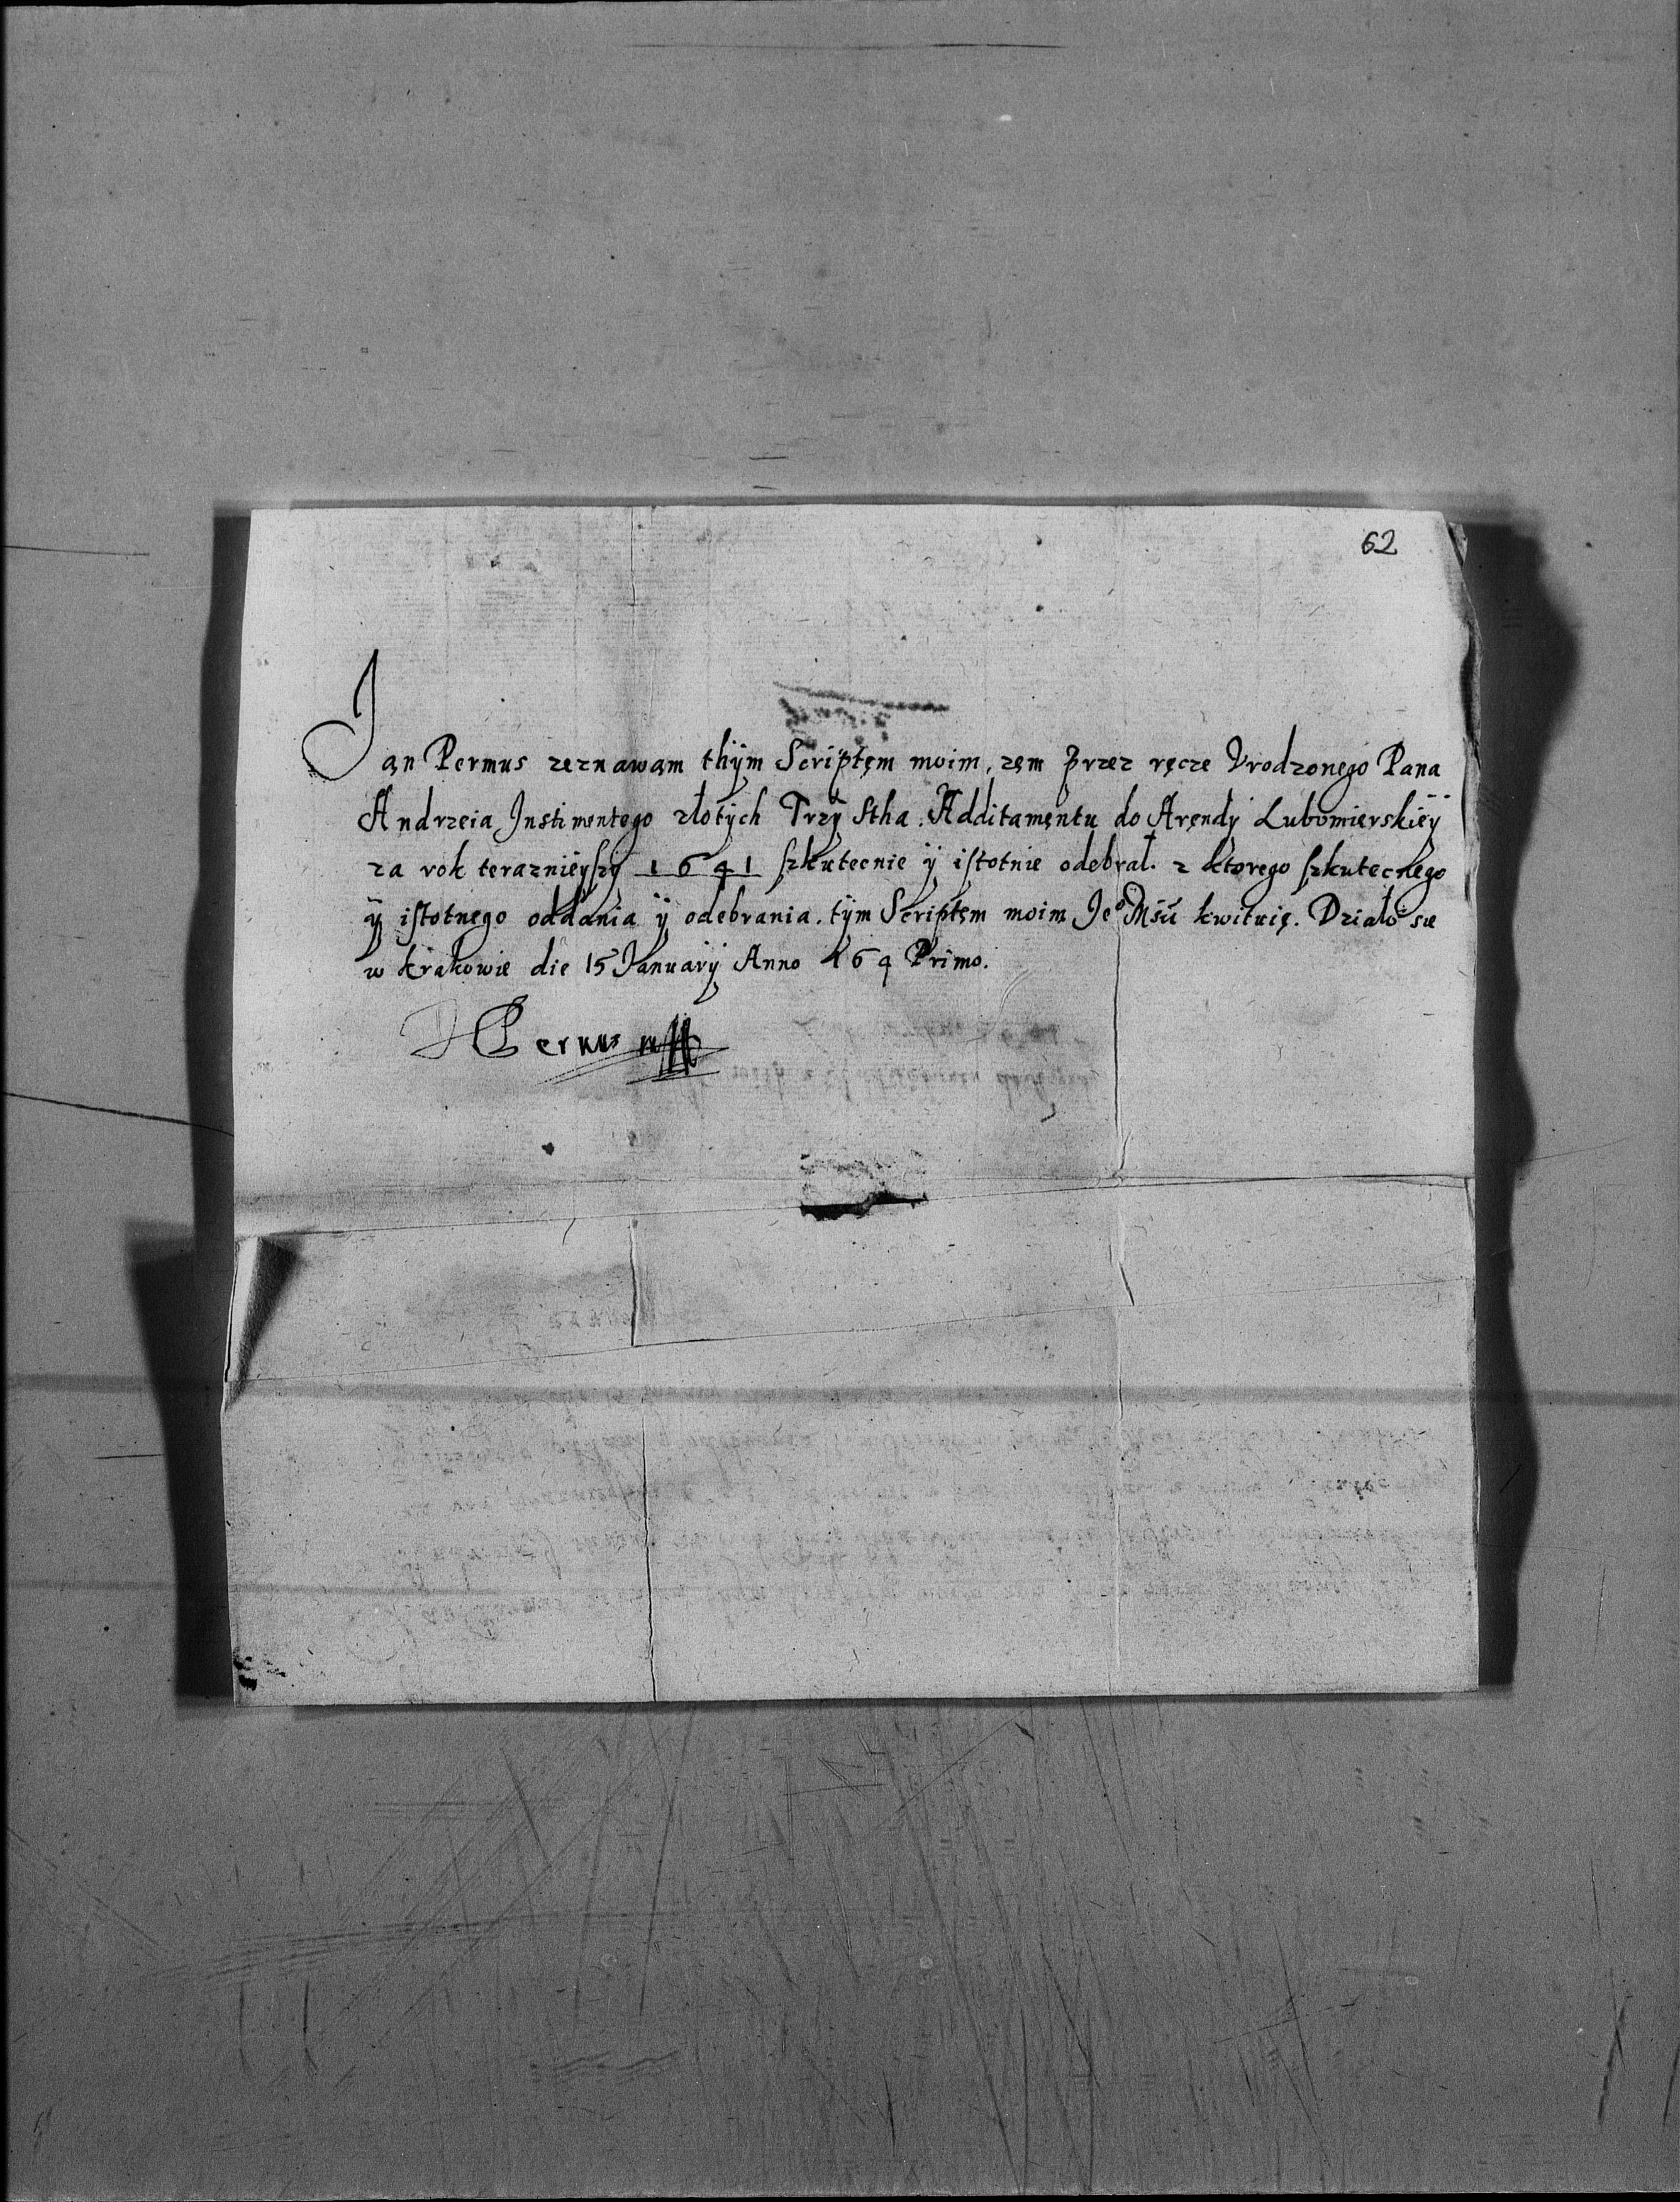 62
Jan Pernus zeznawam thÿm Scriptęm moim, zęm przez ręcze Vrodzonego Pana
Andrzeia Instimontego złotych Trzÿ Stha. Additamęntu do Aręndÿ Lubomierskiëÿ
za rok teraznieÿszÿ 1641 szkutecnie ÿ istotnie odebrał. z ktorego szkutecnego
ÿ istotnego oddania ÿ odebrania. tÿm Scriptęm moim Jeº Mśći kwituię. Działo się
w krakowie die 15 Januarÿ Anno 164 Primo.
JPernus